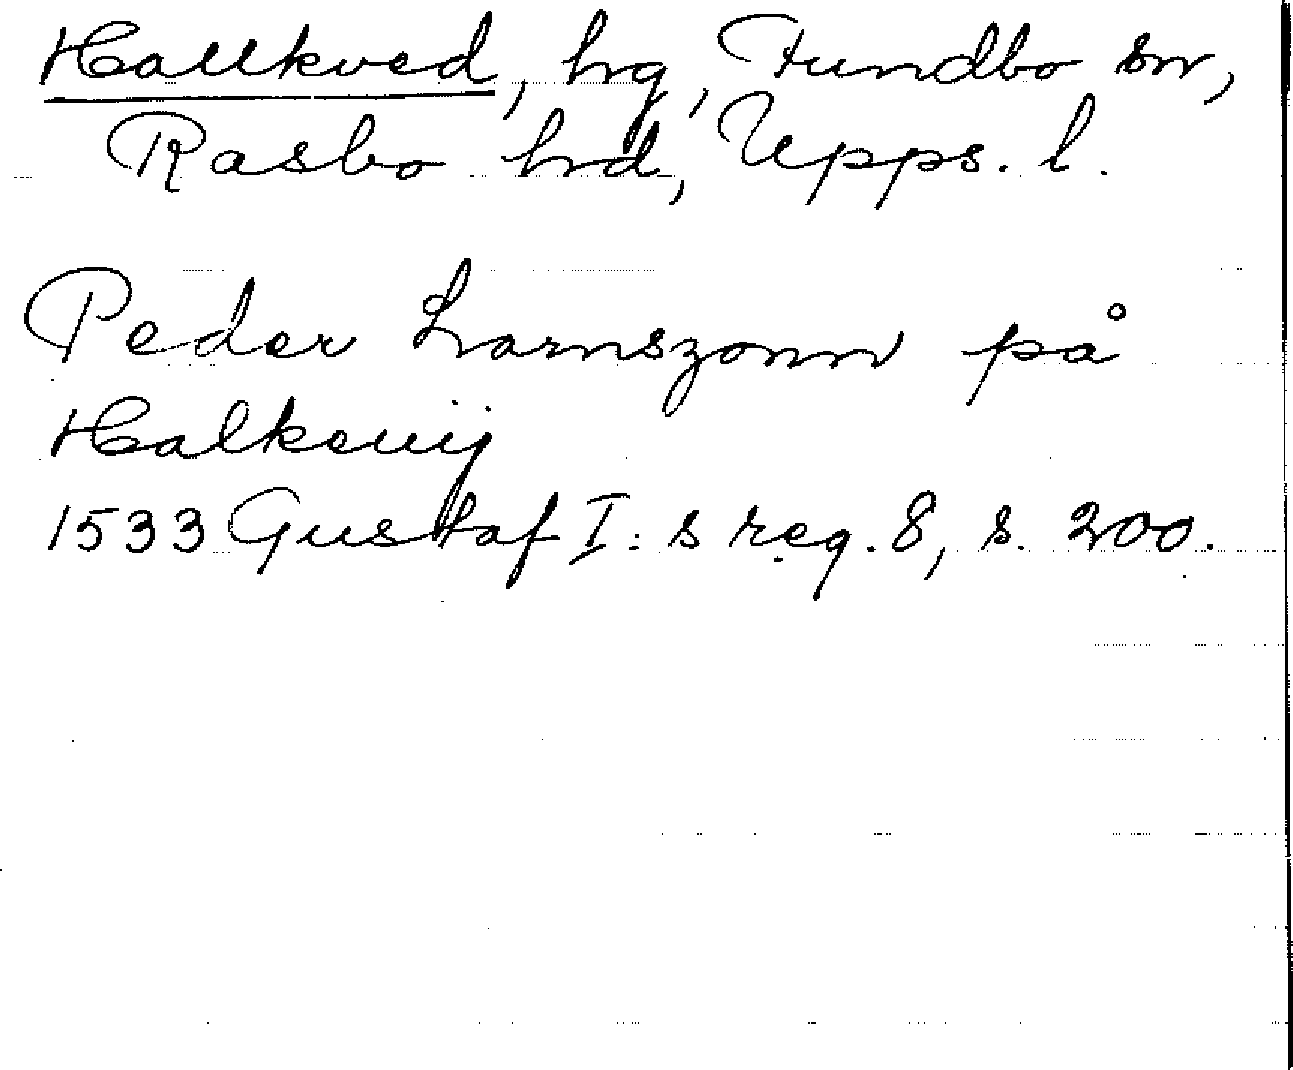 Hallkved, hg, Fundbo sn,
Rasbo hrd, Upps. l.
Peder Larnszonn på
Halkeuij
1533 Gustaf I:s reg. 8, s. 200.